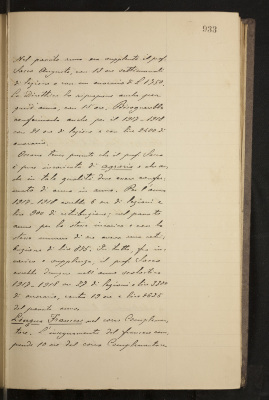 933
Nel passato anno era supplente il prof.
Sacco Augusto, con 18 ore settimanali
di lezione e con un onorario di L. 1350.
La Direttrice la
anno, con 15 ore. Bisognerebbe
confermarlo anche per il 1917-1918
con 21 ore di lezione e con lire 2600 di
onorario.
Occorre tener presente che il prof. Sacco
è pure incaricato di agraria e che an-
che in tale qualità deve essere confer-
mato di anno in anno. Per l'anno
1917-1918 avrebbe 6 ore di lezioni e
lire 900 di retribuzione; nel passato
anno per lo stesso incarico e con lo
stesso numero di ore aveva una retri-
buzione di lire 875. In tutto, fra in-
carico e supplenza, il prof. Sacco
avrebbe dunque nell'anno scolastico
1917-1918 ore 27 di lezione e lire
di onorario, contro
del passato anno.
Lingua Francese nel corso Complemen-
tare. L'insegnamento del francese com-
prende 10 ore del corso Complementare